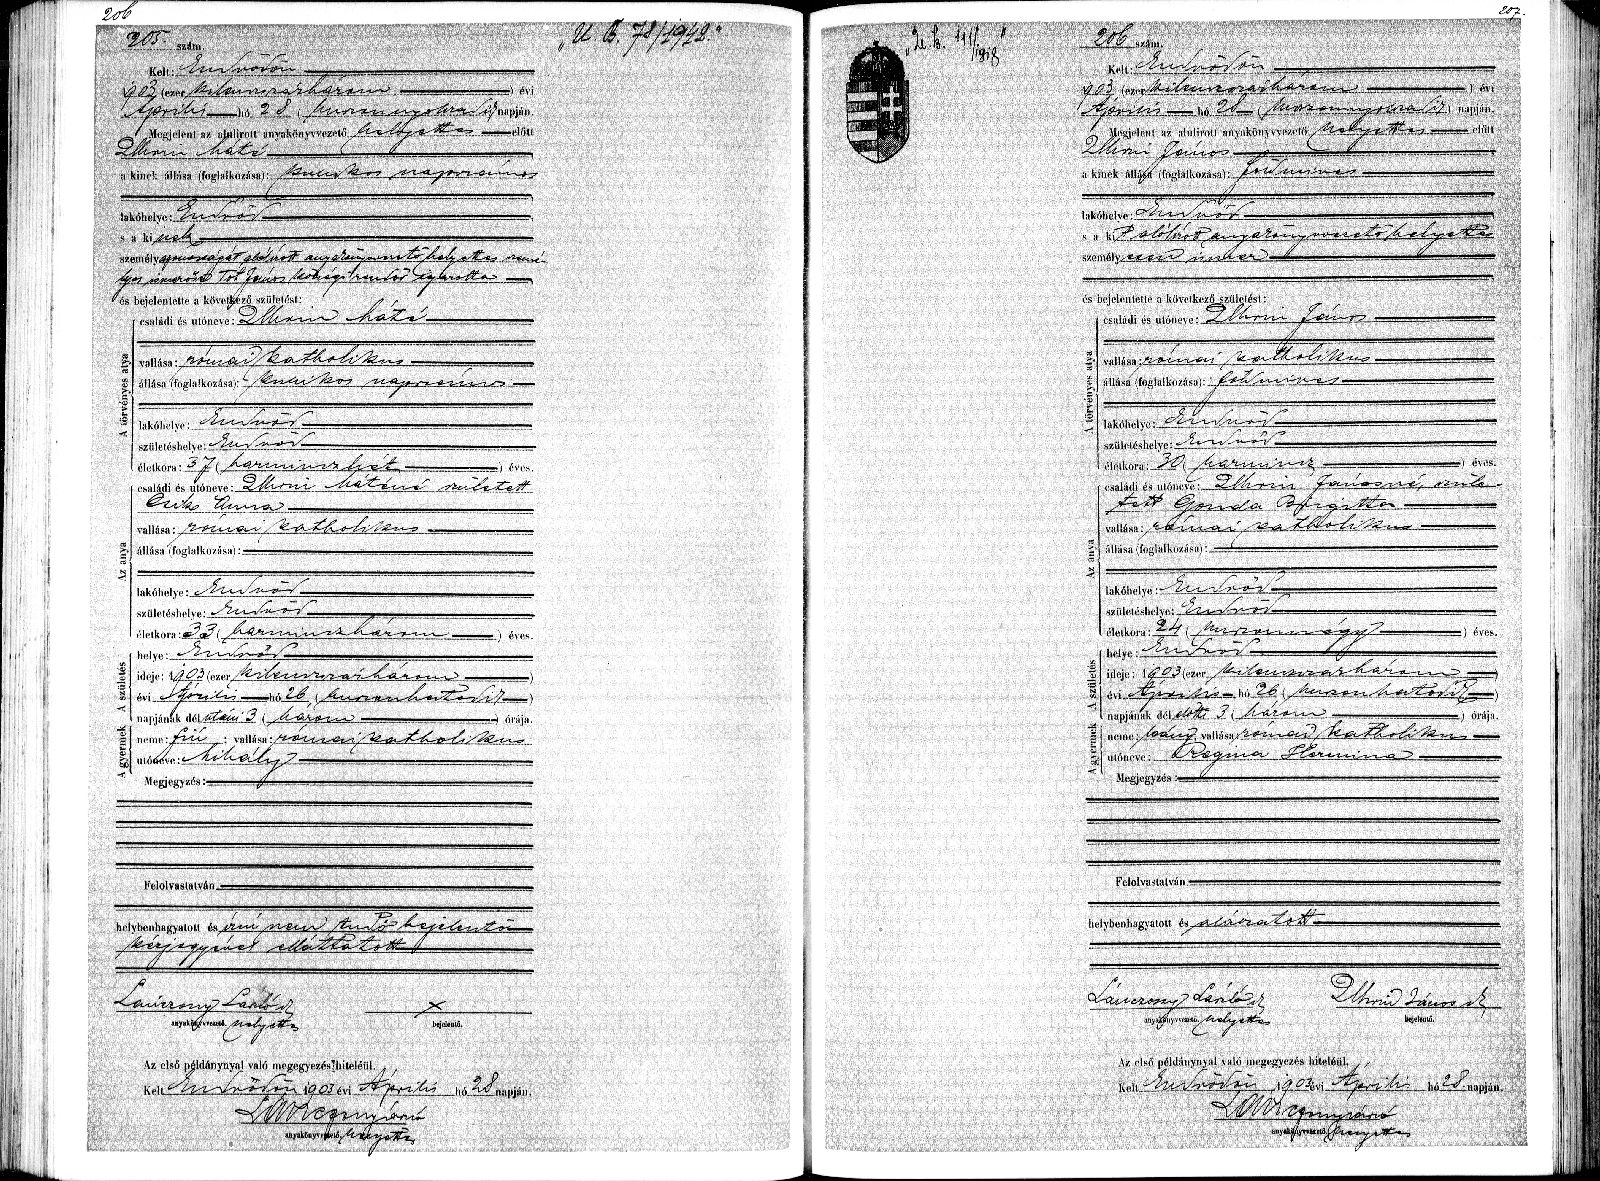 206
205 szám.
"U. B. 78/1942."
Kelt: Endrődön
903 (ezer kilenczszázhárom) évi
Április hó 28 (huszonnyolczadik) napján.
Megjelent az alulirott anyakönyvvezető helyettes előtt
Máté
a kinek állása (foglalkozása): napszámos
lakóhelye: Endrőd
s a kinek
személyazonosságát alólirott anyakönyvvezető helyettes
János községi rendőr igazolta
és bejelentette a következő születést:
A törvényes atya
családi és utóneve: Máté
vallása: római katholikus
állása (foglalkozása): napszámos
lakóhelye: Endrőd
születéshelye: Endrőd
életkora: 37 (harminczhét) éves.
Az anya
családi és utóneve: Máténé született
Anna
vallása: római katholikus
állása (foglalkozása):
lakóhelye: Endrőd
születéshelye: Endrőd
életkora: 33 (harminczhárom) éves.
A születés
helye: Endrőd
ideje: 1903 (ezer kilenczszázhárom)
évi Április hó 26 (huszonhatodik)
napjának dél utáni 3 (három) órája.
A gyermek
neme: fiú; vallása: római katholikus
utóneve: Mihály
Megjegyzés:
Felolvastatván
helybenhagyatott és írni nem tudó bejelentő
kézjegyével elláttatott
Lánczony László
x
anyakönyvvezető. helyettes
bejelentő.
Az első példánynyal való megegyezés hiteléül.
Kelt Endrődön 1903 évi Április hó 28 napján.
anyakönyvvezető. helyettes
207.
206 szám.
Kelt: Endrődön
903 (ezer kilenczszázhárom) évi
Április hó 28 (huszonnyolczadik) napján.
Megjelent az alulirott anyakönyvvezető helyettes előtt
János
a kinek állása (foglalkozása): földmíves
lakóhelye: Endrőd
s a kit alólirott anyakönyvvezető helyettes
személyesen ismer
és bejelentette a következő születést:
A törvényes atya
családi és utóneve: János
vallása: római katholikus
állása (foglalkozása): földmíves
lakóhelye: Endrőd
születéshelye: Endrőd
életkora: 30 (harmincz) éves.
Az anya
családi és utóneve: Jánosné, szüle-
tett Gonda Brigitta
vallása: római katholikus
állása (foglalkozása):
lakóhelye: Endrőd
születéshelye: Endrőd
életkora: 24 (huszonnégy) éves.
A születés
helye: Endrőd
ideje: 1903 (ezer kilenczszázhárom)
évi Április hó 26 (huszonhatodik)
napjának dél előtti 3 (három) órája.
A gyermek
neme: leány; vallása: római katholikus
utóneve: Regina Hermina
Megjegyzés:
Felolvastatván
helybenhagyatott és aláíratott
Lánczony László
János
anyakönyvvezető. helyettes
bejelentő.
Az első példánynyal való megegyezés hiteléül.
Kelt Endrődön 1903 évi Április hó 28 napján.
anyakönyvvezető. helyettes